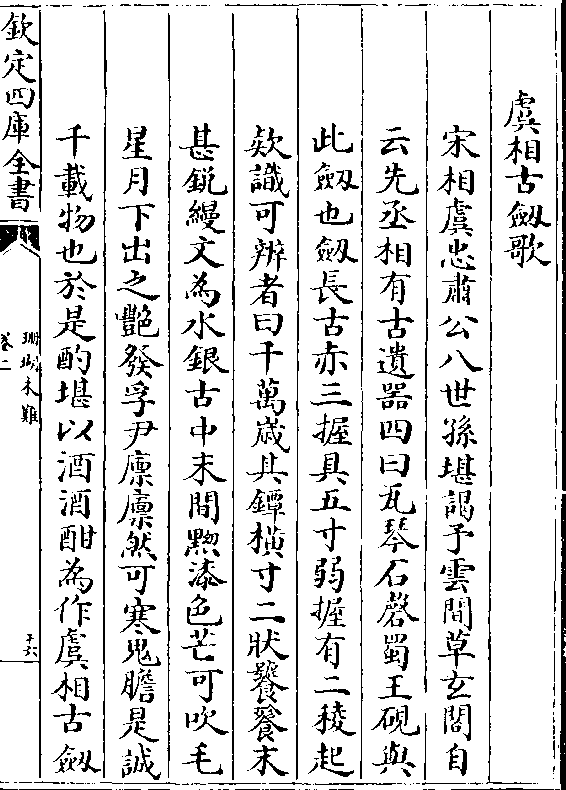 虞相古劔歌
宋相虞忠肅公八世孫堪謁予雲間草玄閣自
云先丞相有古遺器四曰瓦琴石磬蜀王硯與
此劔也劔長古赤三握具五寸弱握有二稜起
欵識可辨者曰千萬歲其鐔橫寸二狀饕餮末
甚銳縵文為水銀古中末間黝漆色芒可吹毛
星月下出之艷發孚尹凛凛然可寒鬼膽是誠
千載物也於是酌堪以酒酒酣為作虞相古劔
欽定四庫全書
珊瑚木難
卷二
十六